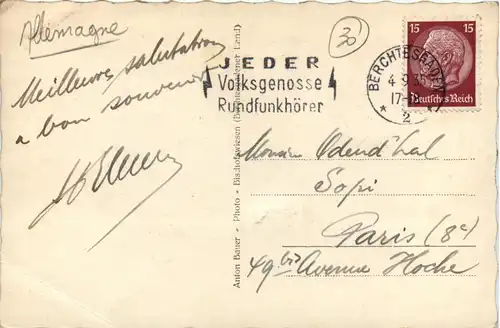 Allemagne
30
JEDER
Volksgenosse
Rundfunkhörer
BERCHTESGADEN
4.9.35
17-18
* 2 *
15 15
Deutsches Reich
Meilleures salutations
a bon souvenir
Anton Bauer - Photo - Bischofswiesen
Monsieur Odend'hal
Sopi
Paris (8e)
49bis Avenue Hoche